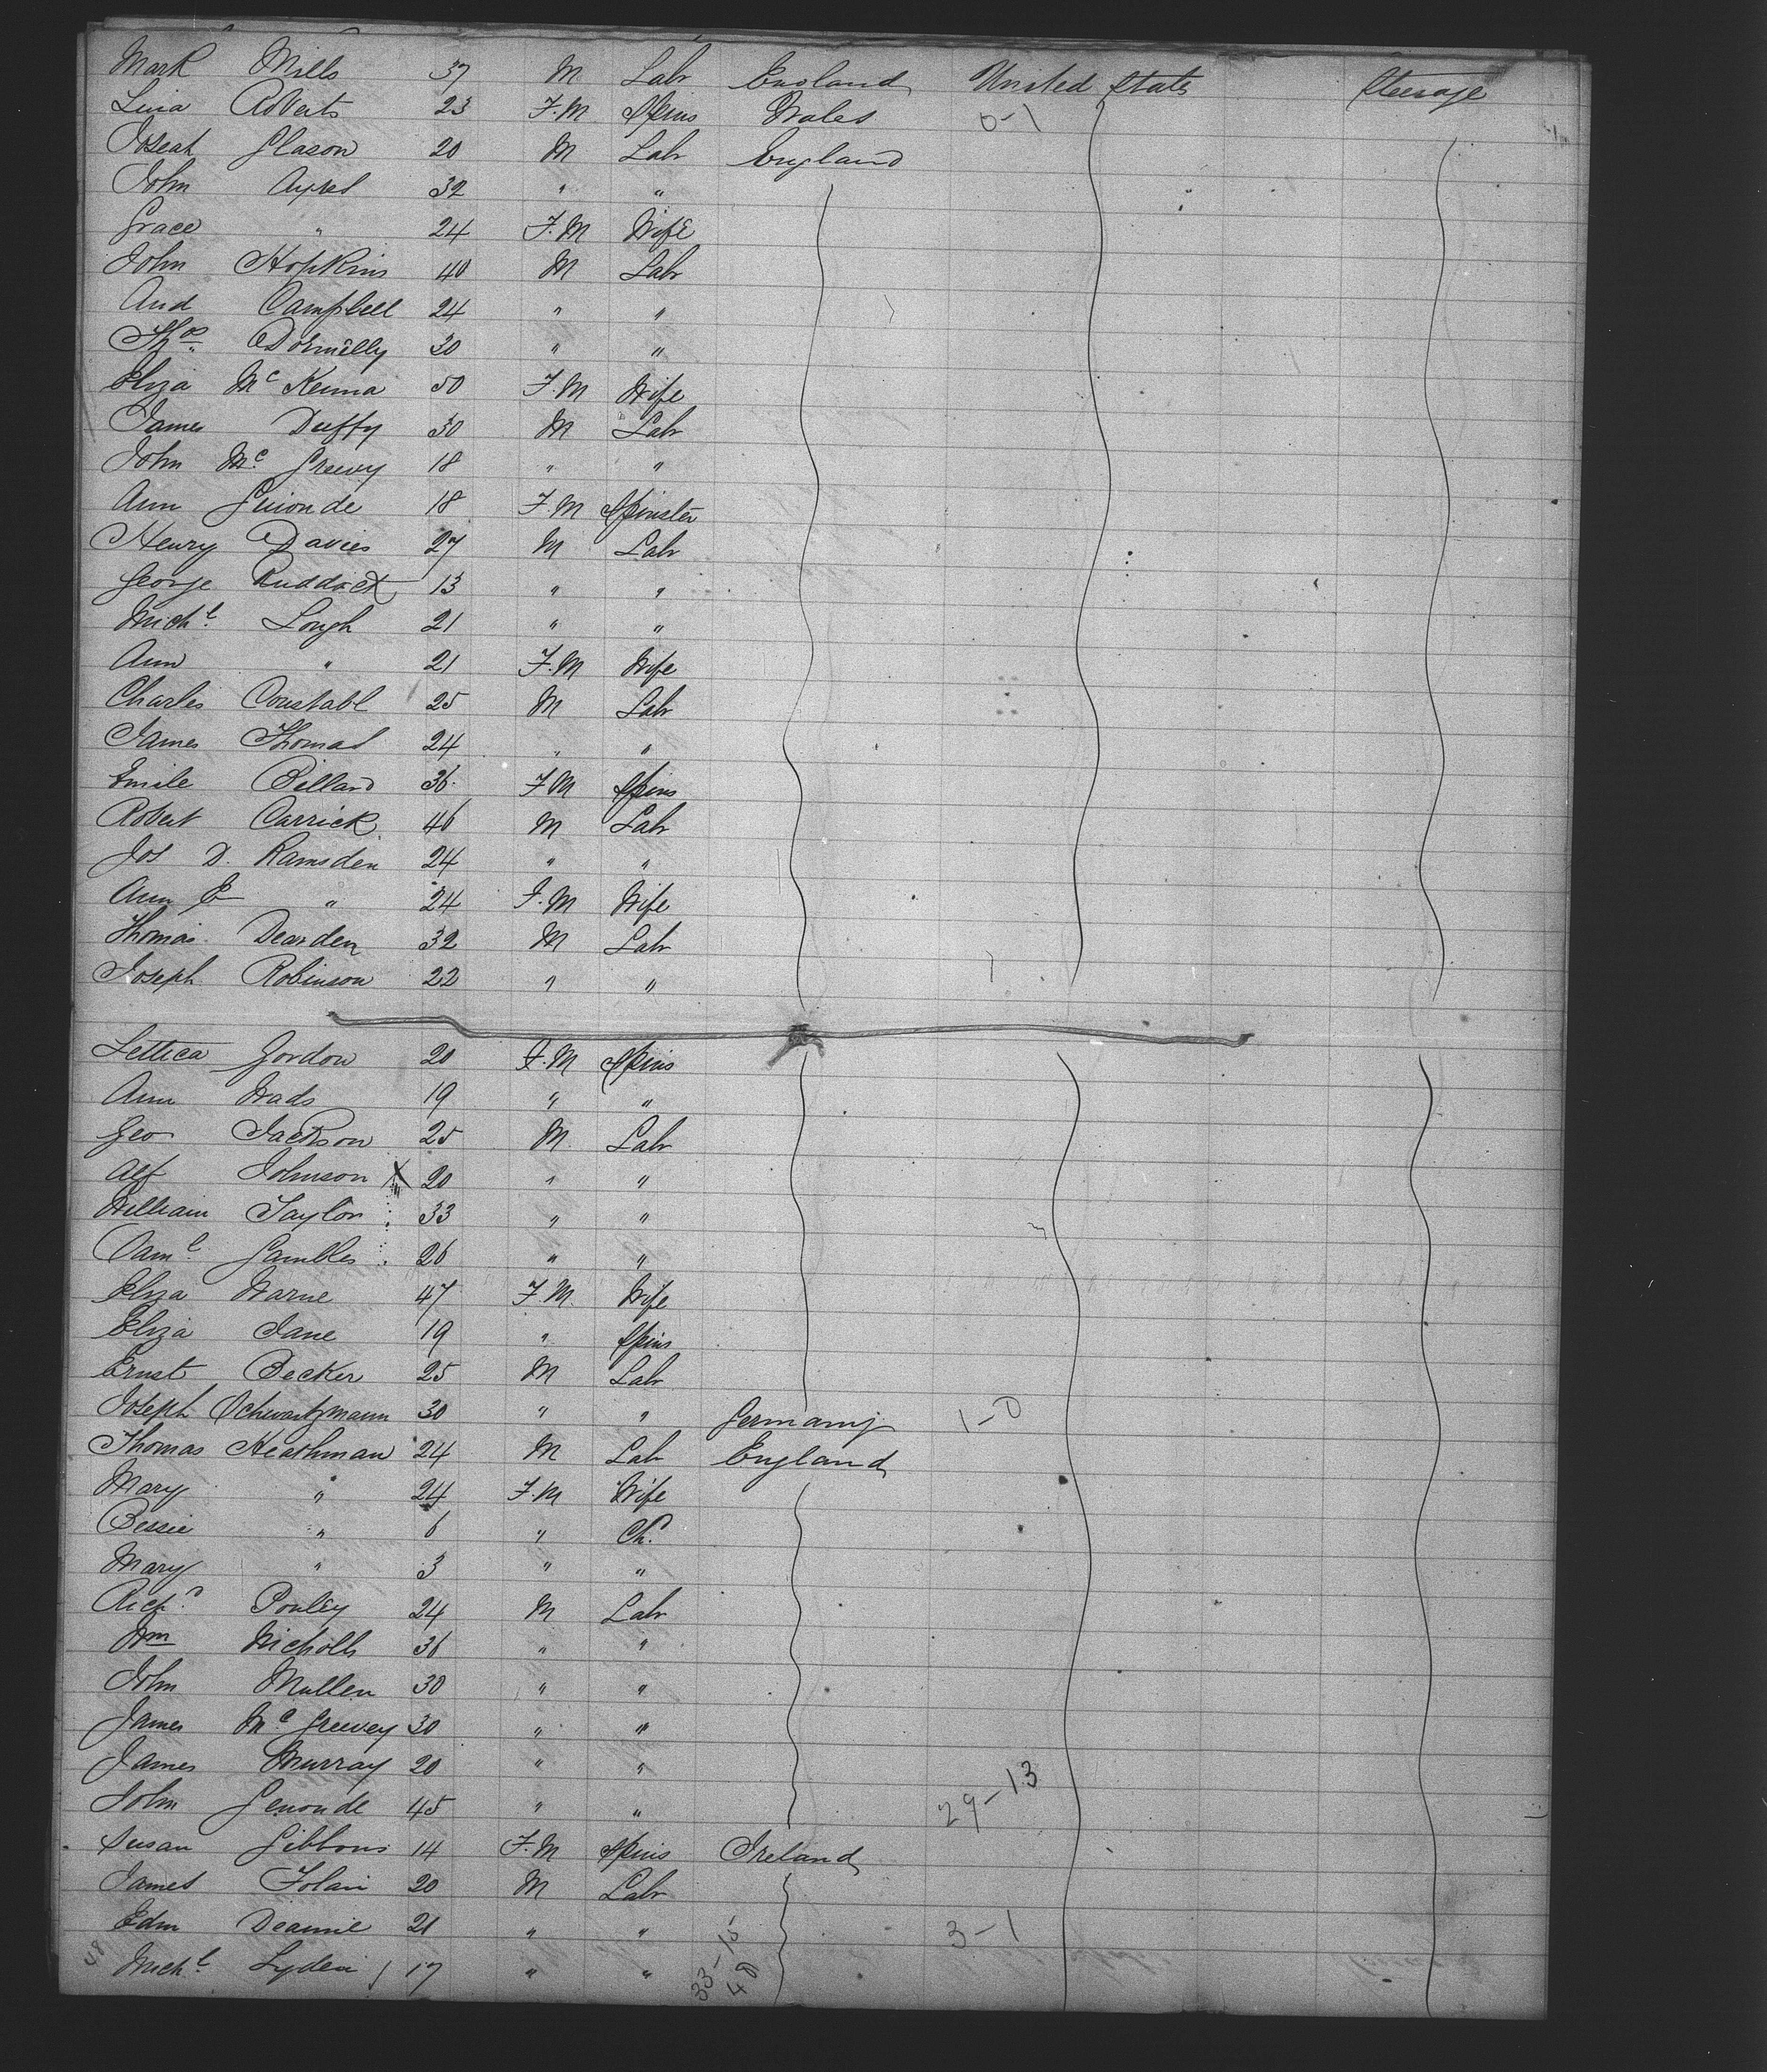 Mark Mills 37 M Labr England United States Steerage
Lina Roberts 23 F.M Spins Wales 0-1
Joseah Glason 20 M Labr England
John Ayres 32 " "
Grace " 24 F.M Wife
John Hopkins 40 M Labr
And Campbell 24 " "
Thos O'Donnelly 30 " "
Eliza McKenna 50 F.M Wife
James Duffy 30 M Labr
John McGreevy 18 " "
Ann Genonde 18 F.M Spinster
Henry Davies 27 M Labr
George Ruddock 13 " "
Michl Lough 21 " "
Ann " 21 F.M Wife
Charles Constabl 25 M Labr
James Thomas 24 " "
Emile Billard 36 F.M Spins
Robert Carrick 46 M Labr
Jos D. Ramsden 24 " "
Ann E " 24 F.M Wife
Thomas Dearden 32 M Labr
Joseph Robinson 22 " "
Lettica Gordon 20 F.M Spins
Ann Wads 19 " "
Geo Jackson 25 M Labr
Alf Johnson X 20 " "
William Taylor 33 " "
Saml Gambles 26 " "
Eliza Warne 47 F.M Wife
Eliza Jane 19 " Spins
Ernst Becker 25 M Labr
Joseph Schwartzmann 30 " " Germany 1-0
Thomas Heathman 24 M Lab England
Mary " 24 F.M Wife
Bessie " 6 " Ch.
Mary " 3 " "
Richd Pouley 24 M Labr
Wm Nicholls 36 " "
John Mullen 30 " "
James McGreevey 30 " "
James Murray 20 " "
John Genonde 45 " " 29-13
Susan Gibbons 14 F.M Spins Ireland
James Folan 20 M Labr
Edm 21 " " 3-1
48 Michl Lyden 17 " " 33-15 48